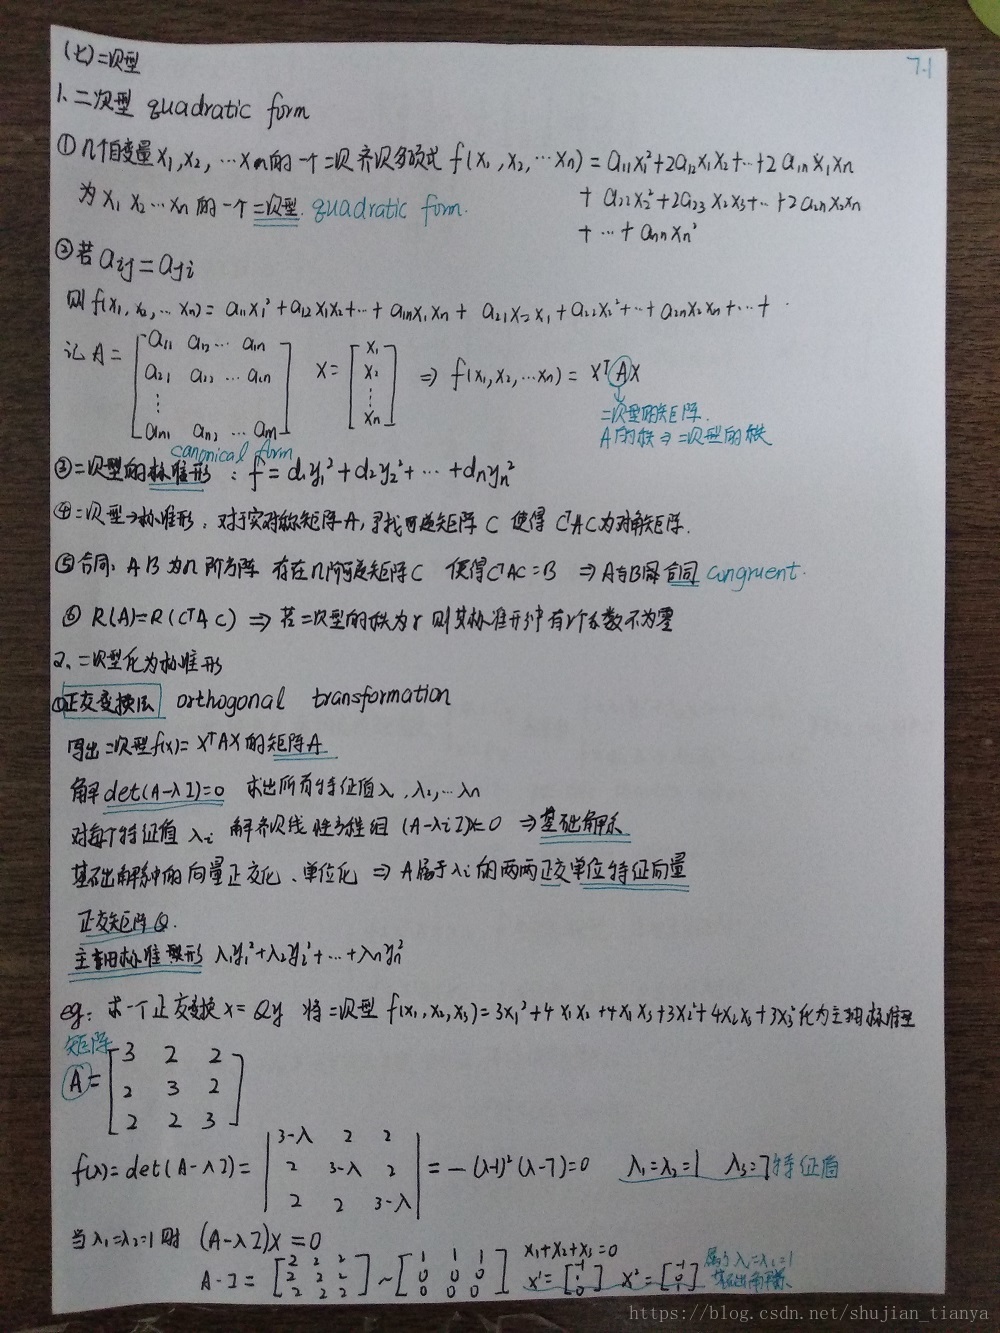 (七)二次型
7.1
1、二次型 quadratic form
① n个自变量 x₁,x₂,…xn的一个二次齐次多项式 f(x₁,x₂,…xn) = a₁₁x₁²+2a₁₂x₁x₂+…+2a₁nx₁xn
为 x₁ x₂…xn 的一个二次型. quadratic form.
+ a₂₂x₂²+2a₂₃x₂x₃+…+2a₂nx₂xn
+ … + annxn²
② 若 aij = aji
则 f(x₁,x₂,…xn) = a₁₁x₁²+a₁₂x₁x₂+…+a₁nx₁xn + a₂₁x₂x₁+a₂₂x₂²+…+a₂nx₂xn+…+
记 A = [a₁₁ a₁₂ … a₁n
a₂₁ a₂₂ … a₂n
⋮
an₁ an₂ … ann] X = [x₁ x₂ ⋮ xn] ⇒ f(x₁,x₂,…xn) = XᵀAX
二次型的矩阵.
A的秩⇒二次型的秩
canonical form
③ 二次型的标准形 : f = d₁y₁²+d₂y₂²+…+dnyn²
④ 二次型→标准形: 对于实对称矩阵A, 寻找可逆矩阵 C 使得 CᵀAC为对角矩阵.
⑤ 合同: A B 为n阶方阵 存在n阶可逆矩阵C 使得CᵀAC=B ⇒ A与B合同 congruent.
⑥ R(A)=R(CᵀAC) ⇒ 若二次型的秩为r 则其标准形中有r个系数不为零
2、二次型化为标准形
①正交变换法 orthogonal transformation
写出二次型f(x)=XᵀAX的矩阵A
解 det(A-λI)=0 求出所有特征值λ₁,λ₂,…λn
对每个特征值 λi 解齐次线性方程组 (A-λiI)x=0 ⇒ 基础解系
基础解系中的向量正交化、单位化 ⇒ A属于λi的两两正交单位特征向量
正交矩阵Q.
主轴标准形 λ₁y₁²+λ₂y₂²+…+λnyn²
eg: 求一个正交变换 x=Qy 将二次型 f(x₁,x₂,x₃)=3x₁²+4x₁x₂+4x₁x₃+3x₂²+4x₂x₃+3x₃²化为主轴标准型
矩阵
A = [3 2 2
2 3 2
2 2 3]
f(λ)=det(A-λI)= |3-λ 2 2
2 3-λ 2
2 2 3-λ| = -(λ-1)²(λ-7)=0 λ₁=λ₂=1 λ₃=7 特征值
当λ₁=λ₂=1时 (A-λI)x=0
A-I = [2 2 2
2 2 2
2 2 2] ~ [1 1 1
0 0 0
0 0 0] x₁+x₂+x₃=0
x¹=[-1 1 0] x²=[-1 0 1] 属于λ₁=λ₂=1
基础解系
https://blog.csdn.net/shujian_tianya